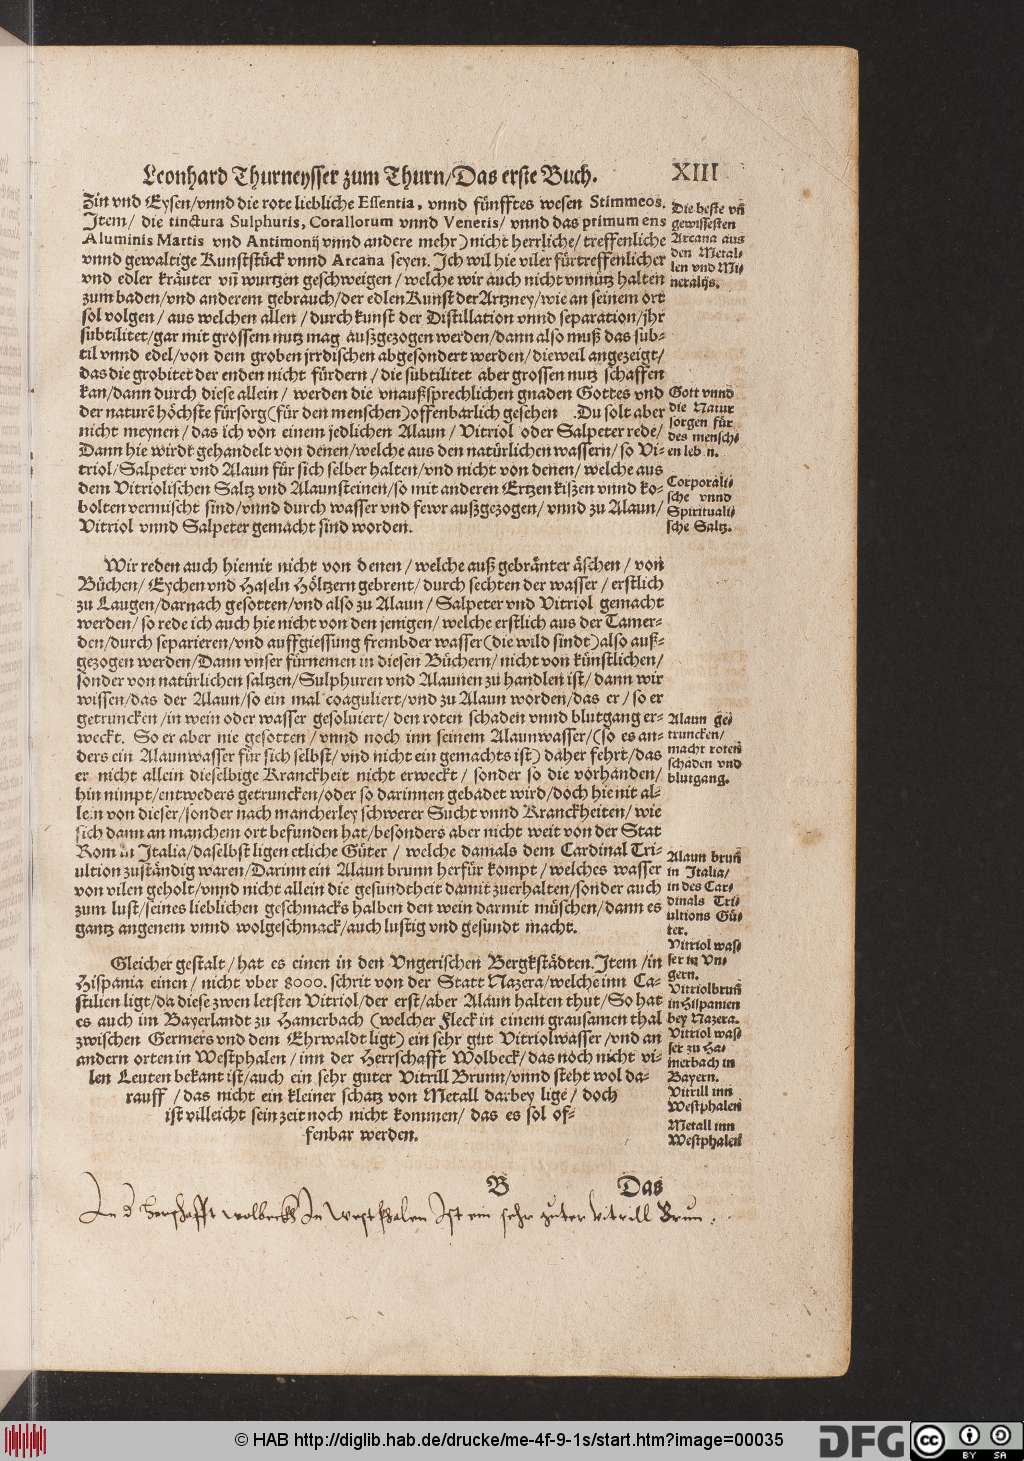 Leonhard Thurneysser zum Thurn/Das erste Buch. XIII
Zin vnd Eysen/vnnd die rote liebliche Essentia, vnnd fünfftes wesen Stimmeos.
Item/ die tinctura Sulphuris, Corallorum vnnd Veneris/ vnnd das primum ens
Aluminis Martis vnd Antimonij vnnd andere mehr) nicht herrliche/ treffenliche
vnnd gewaltige Kunststück vnnd Arcana seyen. Ich wil hie viler fürtreffenlicher
vnd edler kräuter vñ wurtzen geschweigen/ welche wir auch nicht vnnütz halten
zum baden/vnd anderem gebrauch/der edlen Kunst der Artzney/wie an seinem ort
sol volgen/ aus welchen allen/ durch kunst der Distillation vnnd separation/jhr
subtilitet/gar mit grossem nutz mag außgezogen werden/dann also muß das sub-
til vnnd edel/von dem groben jrrdischen abgesondert werden/ dieweil angezeigt/
das die grobitet der enden nicht fürdern/ die subtilitet aber grossen nutz schaffen
kan/dann durch diese allein/ werden die vnaußsprechlichen gnaden Gottes vnd
der naturē höchste fürsorg(für den menschen)offenbarlich gesehen. Du solt aber
nicht meynen/ das ich von einem jedlichen Alaun/ Vitriol oder Salpeter rede/
Dann hie wirdt gehandelt von denen/welche aus den natürlichen wassern/ so Vi-
triol/Salpeter vnd Alaun für sich selber halten/vnd nicht von denen/ welche aus
dem Vitriolischen Saltz vnd Alaunsteinen/so mit anderen Ertzen kißzen vnnd ko-
bolten vermischt sind/vnnd durch wasser vnd fewr außgezogen/ vnnd zu Alaun/
Vitriol vnnd Salpeter gemacht sind worden.
Die beste vñ
gewissesten
Arcana aus
den Metal-
len vnd Mi-
neralijs.
Gott vnnd
die Natur
sorgen für
des mensch-
en leb n.
Corporali-
sche vnnd
Spirituali-
sche Saltz.
Wir reden auch hiemit nicht von denen/ welche auß gebränter äschen/ von
Büchen/ Eychen vnd Haseln Höltzern gebrent/ durch sechten der wasser/ erstlich
zu Laugen/darnach gesotten/vnd also zu Alaun/ Salpeter vnd Vitriol gemacht
werden/ so rede ich auch hie nicht von den jenigen/ welche erstlich aus der Tamer-
den/durch separieren/vnd auffgiessung frembder wasser(die wild sindt)also auß-
gezogen werden/Dann vnser fürnemen in diesen Büchern/ nicht von künstlichen/
sonder von natürlichen saltzen/Sulphuren vnd Alaunen zu handlen ist/ dann wir
wissen/das der Alaun/so ein mal coaguliert/vnd zu Alaun worden/das er/ so er
getruncken/in wein oder wasser gesoluiert/ den roten schaden vnnd blutgang er-
weckt. So er aber nie gesotten/ vnnd noch inn seinem Alaunwasser/(so es an-
ders ein Alaunwasser für sich selbst/ vnd nicht ein gemachts ist) daher fehrt/das
er nicht allein dieselbige Kranckheit nicht erweckt/ sonder so die vorhanden/
hin nimpt/entweders getruncken/oder so darinnen gebadet wird/doch hie nit al-
lein von dieser/sonder nach mancherley schwerer Sucht vnnd Kranckheiten/ wie
sich dann an manchem ort befunden hat/besonders aber nicht weit von der Stat
Rom in Italia/daselbst ligen etliche Güter/ welche damals dem Cardinal Tri-
ultion zuständig waren/Darinn ein Alaun brunn herfür kompt/welches wasser
von vilen geholt/vnnd nicht allein die gesundtheit damit zuerhalten/sonder auch
zum lust/seines lieblichen geschmacks halben den wein darmit müschen/dann es
gantz angenem vnnd wolgeschmack/auch lustig vnd gesundt macht.
Alaun ge-
truncken/
macht roten
schaden vnd
blutgang.
Alaun brunñ
in Italia/
in des Car-
dinals Tri-
ultions Gü-
ter.
Gleicher gestalt/hat es einen in den Vngerischen Bergkstädten. Item/in
Hispania einen/ nicht vber 8000. schrit von der Statt Nazera/welche inn Ca-
stilien ligt/da diese zwen letsten Vitriol/der erst/aber Alaun halten thut/So hat
es auch im Bayerlandt zu Hamerbach (welcher Fleck in einem grausamen thal
zwischen Germers vnd dem Ehrwaldt ligt) ein sehr gut Vitriolwasser/vnd an
andern orten in Westphalen/ inn der Herrschafft Wolbeck/das noch nicht vi-
len Leuten bekant ist/auch ein sehr guter Vitrill Brunn/vnnd steht wol da-
rauff/ das nicht ein kleiner schatz von Metall darbey lige/ doch
ist villeicht sein zeit noch nicht kommen/ das es sol of-
fenbar werden.
Vitriol was-
ser in Vn-
gern.
Vitriolbruñ
in Hispanien
bey Nazera.
Vitriol was-
ser zu Ha-
merbach in
Bayern.
Vitrill inn
Westphalen
Metall inn
Westphalen
B Das
In d herschafft wolbeckh In westphalen Ist ein sehr guter vitrill Brun.
© HAB http://diglib.hab.de/drucke/me-4f-9-1s/start.htm?image=00035
DFG
cc BY SA